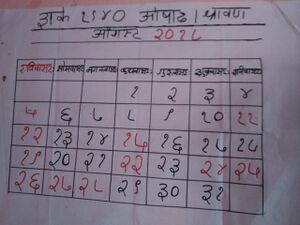 शके १९४० आषाढ / श्रावण
ऑगस्ट २०१८
रविवार सोमवार मंगळवार बुधवार गुरुवार शुक्रवार शनिवार
१ २ ३ ४
५ ६ ७ ८ ९ १० ११
१२ १३ १४ १५ १६ १७ १८
१९ २० २१ २२ २३ २४ २५
२६ २७ २८ २९ ३० ३१